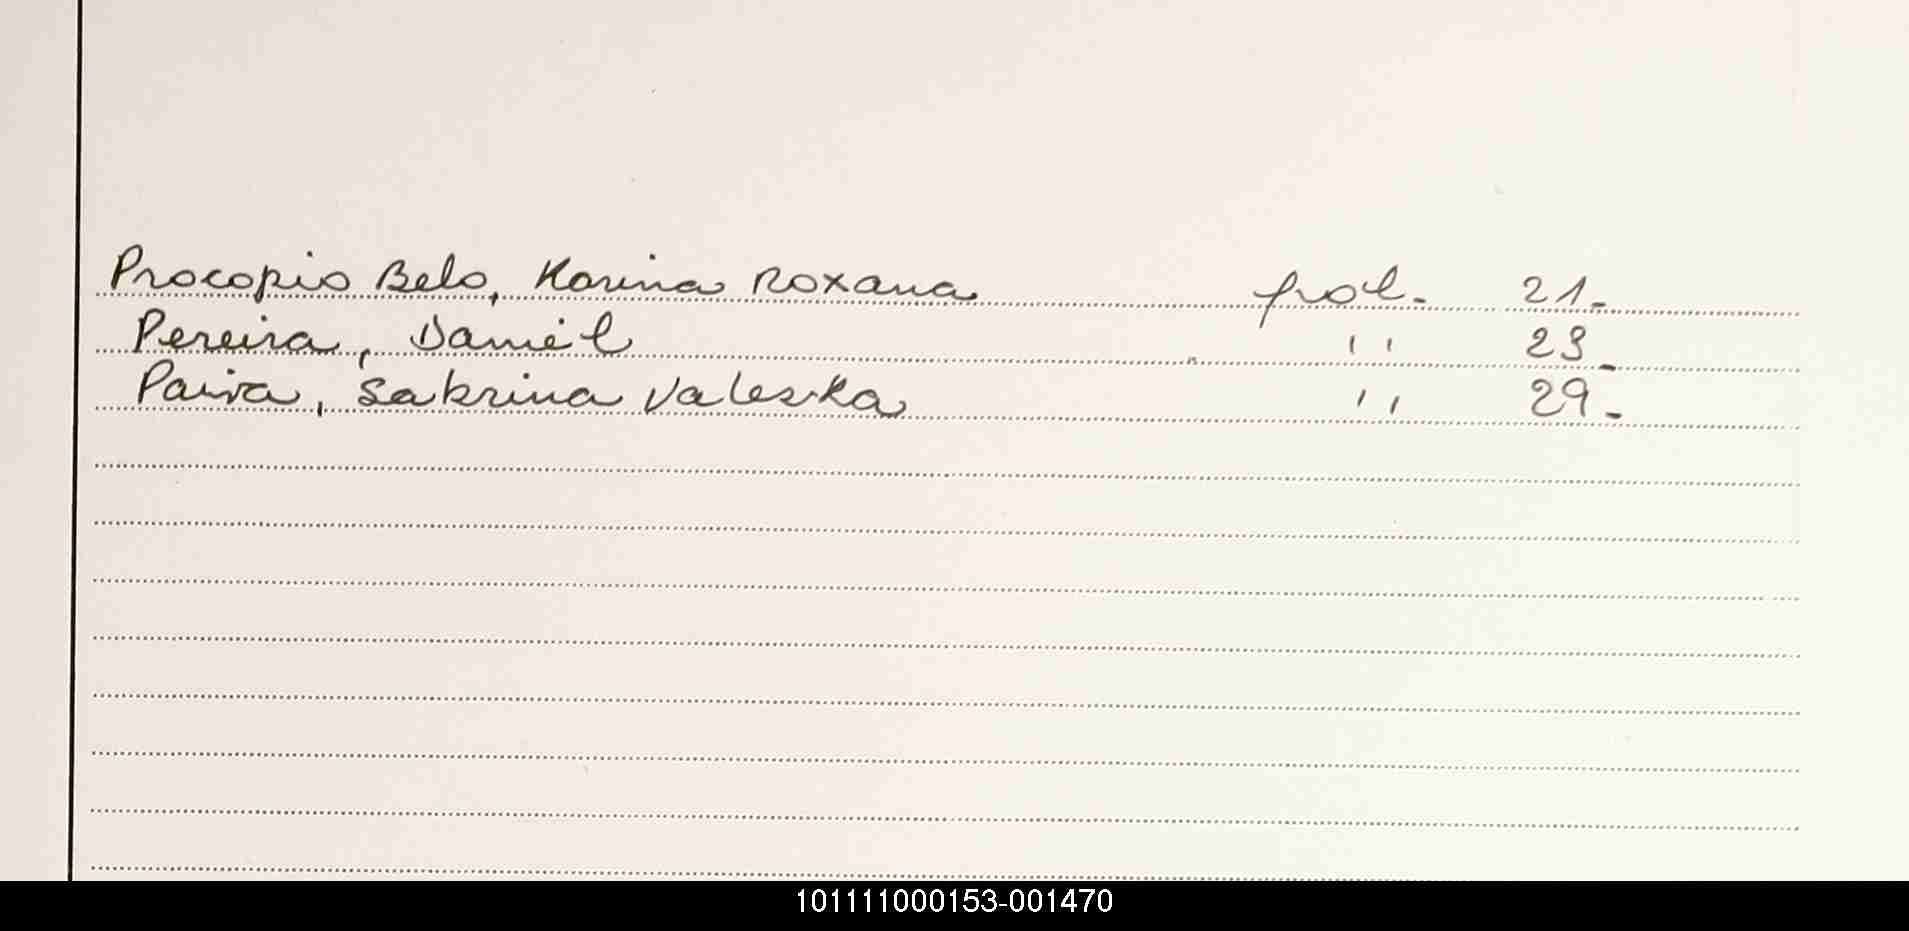 Procopio Belo, Karina Roxana prot. 21.
Pereira, Daniel '' 23.
Paiva, Sabrina Valeska '' 29.
101111000153-001470